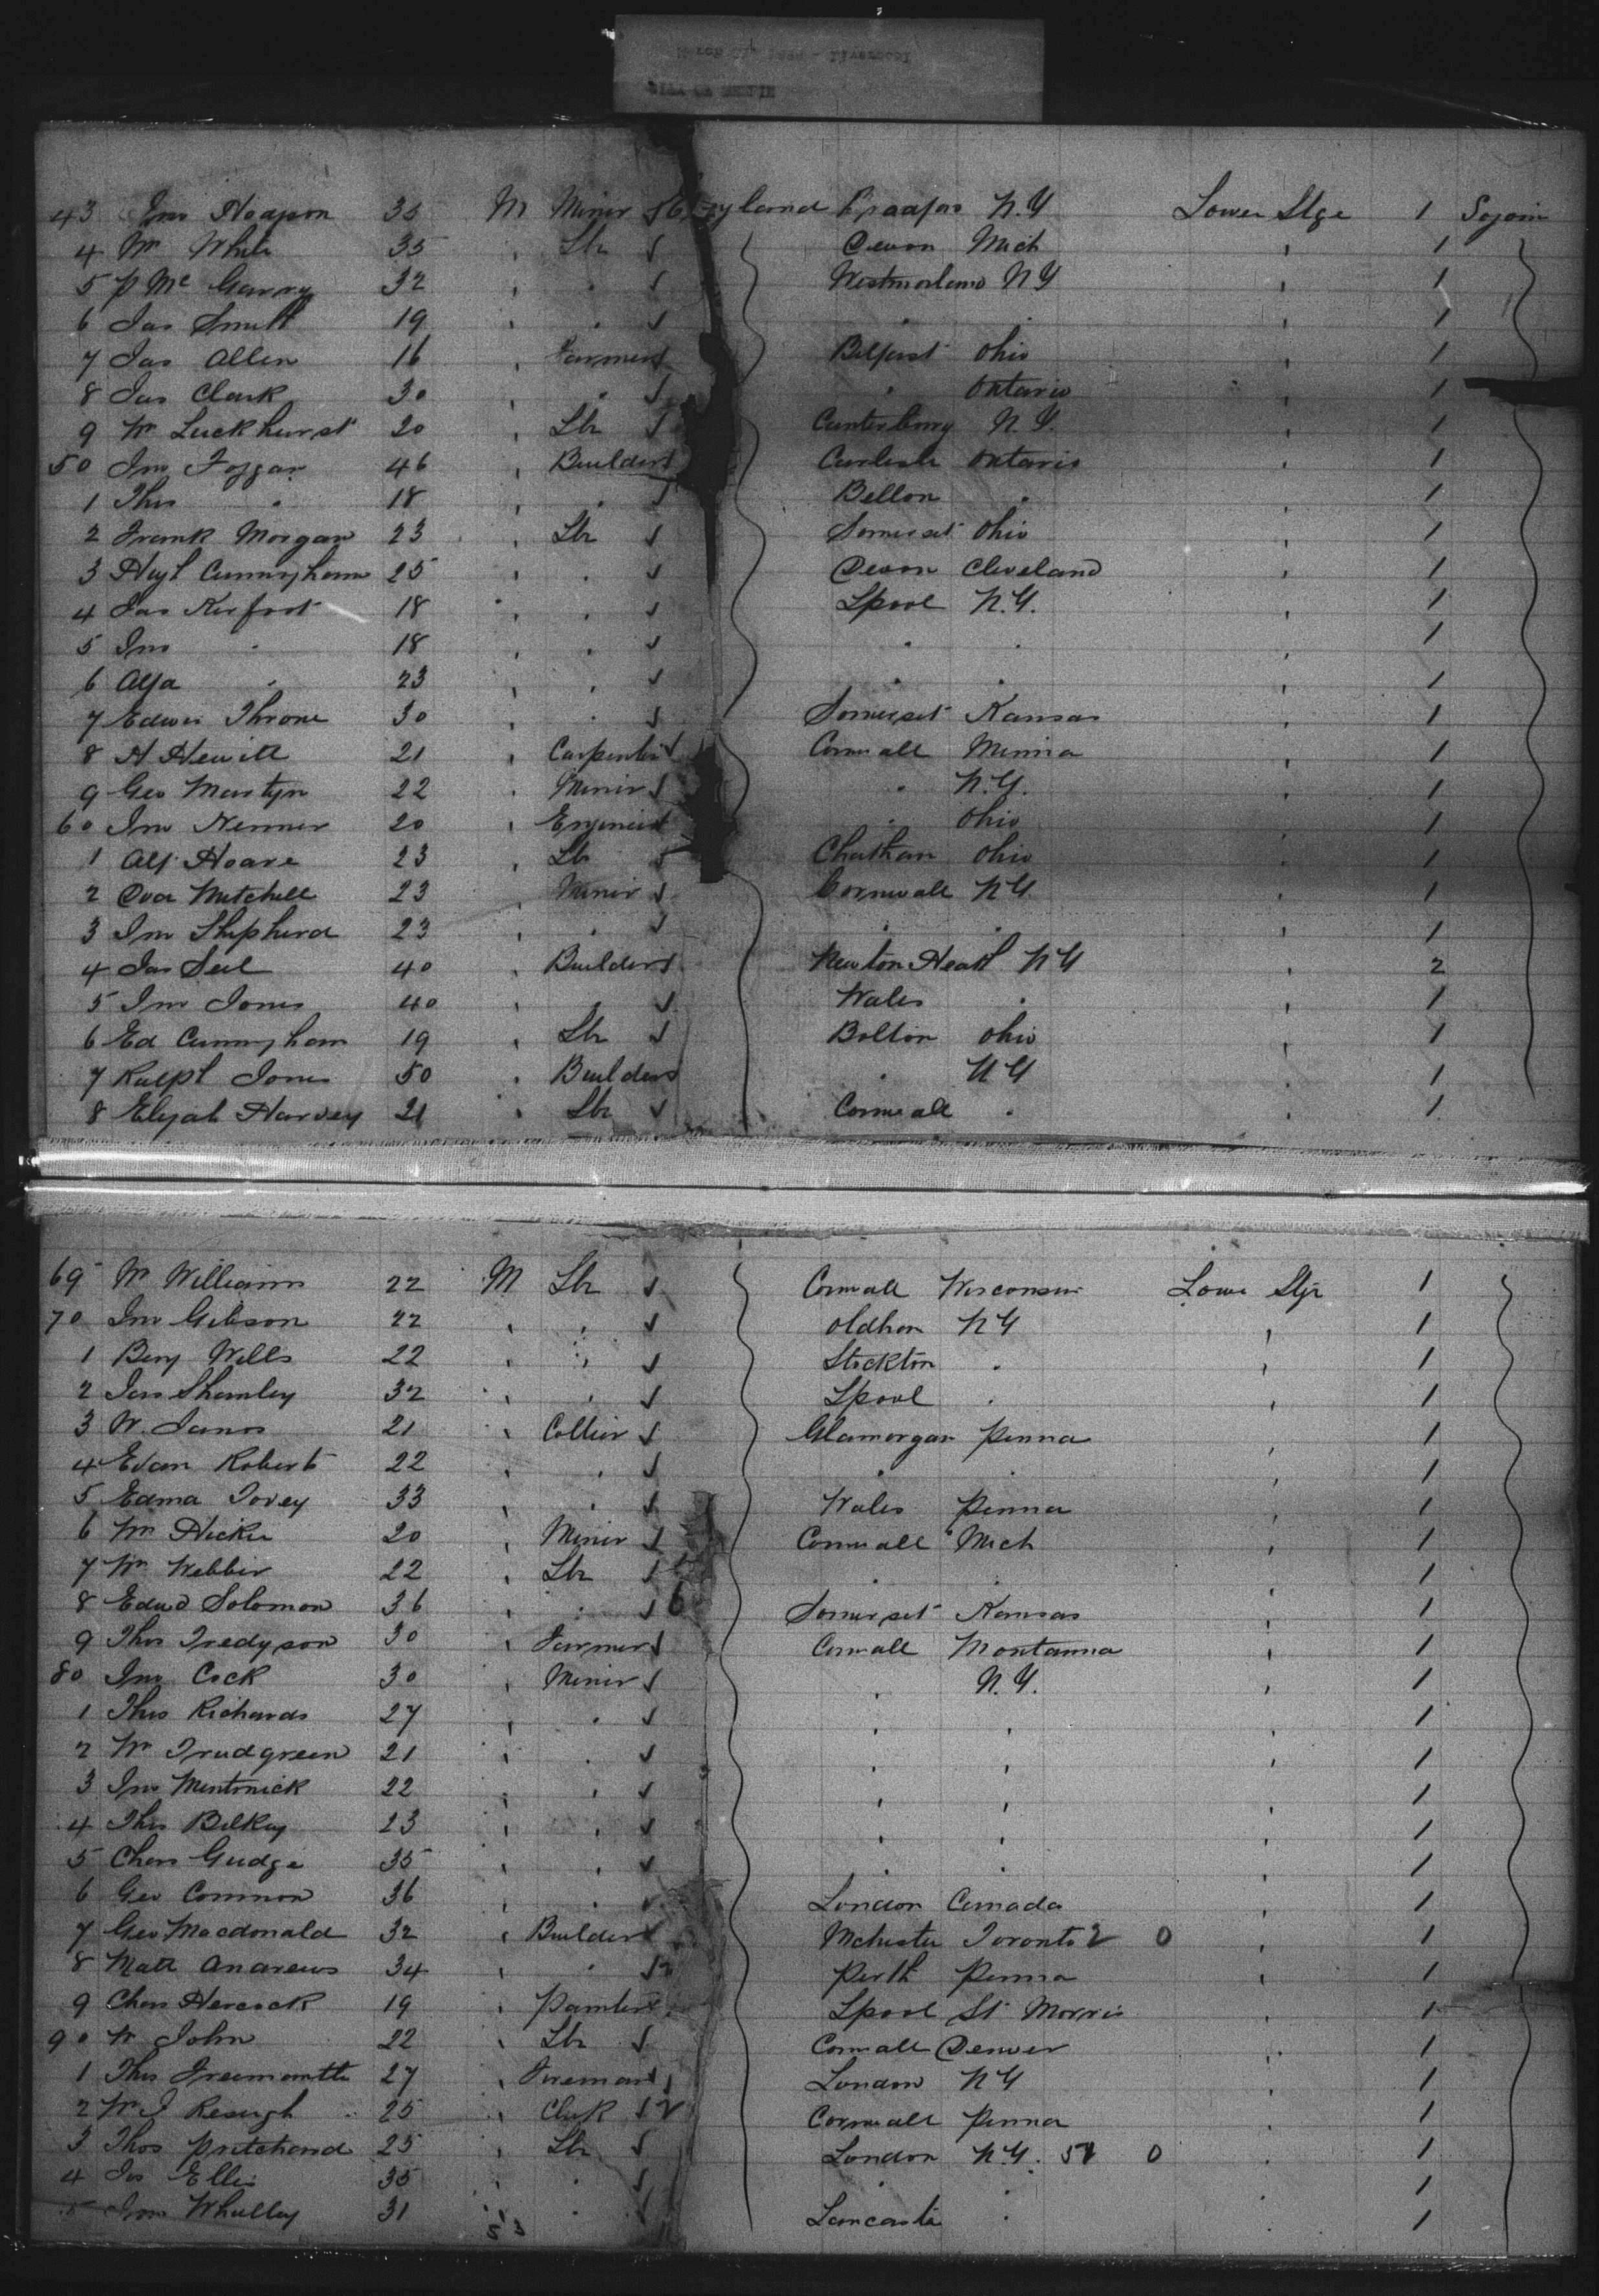 43 Jno Hodgson 35 M Miner England Bradford N.Y Lower Stge 1 Sojoin
4 Wm White 35 " Lbr Devon Mich " 1
5 P Mc Garry 32 " " Westmorland N Y " 1
6 Jas Smith 19 " " " " " 1
7 Jas Allen 16 " Farmer Belfast Ohio " 1
8 Jas Clark 30 " " " Ontario " 1
9 Wm Luckhurst 20 " Lbr Canterbury N.Y. " 1
50 Jno Foggan 46 " Builder Carlisle Ontario " 1
1 Thos " 18 " " Bellon " 1
2 Frank Morgan 23 " Lbr Somerset Ohio " 1
3 Hugh Cunnyham 25 " " Devon Cleveland " 1
4 Jas Kerfoot 18 " " Lpool N.Y. " 1
5 Jno " 18 " " " " " 1
6 Alfd " 23 " " " " " 1
7 Edwin Throne 30 " " Somerset Kansas " 1
8 H Hewitt 21 " Carpenter Cornwall Minna " 1
9 Geo Martyn 22 " Miner " N.Y. " 1
60 Jno Nenner 20 " Engineer " Ohio " 1
1 Alf Hoare 23 " Lbr Chatham Ohio " 1
2 Mitchell 23 " Miner Cornwall N Y " 1
3 Jno Shepherd 23 " " " " " 1
4 Jas Seel 40 " Builder Newton Heath N Y " 2
5 Jno Jones 40 " " Wales " " 1
6 Ed Cunnyham 19 " Lbr Bolton Ohio " 1
7 Ralph Jones 50 " Builder " N Y " 1
8 Elijah Harvey 21 " Lbr Cornwall " " 1
69 Wm Williams 22 M Lbr Cornwall Wisconsin Lower Stge 1
70 Jno Gibson 22 " " Oldham N Y " 1
1 Benj Wells 22 " " Stockton " " 1
2 Jas Shamley 32 " " Lpool " " 1
3 W. James 21 " Collier Glamorgan Penna " 1
4 Evan Roberts 22 " " " " " 1
5 Edmd Tovey 33 " " Wales Penna " 1
6 Wm Hicker 20 " Miner Cornwall Mich " 1
7 Wm Webber 22 " Lbr " " " 1
8 Edwd Solomon 36 " " 6 Somerset Kansas " 1
9 Thos Tredyson 30 " Farmer Cornwall Montanna " 1
80 Jno Cock 30 " Miner " N.Y. " 1
1 Thos Richards 27 " " " " " 1
2 Wm Trudgreen 21 " " " " " 1
3 Jno Mentonick 22 " " " " " 1
4 Thos Bilkey 23 " " " " " 1
5 Chas Gudge 35 " " " " " 1
6 Geo Common 36 " " London Canada " 1
7 Geo Macdonald 32 " Builder Mchester Toronto 2 0 " 1
8 Matt Andrews 34 " " Perth Penna " 1
9 Chas Hercock 19 " Painter Lpool St Morris 1
90 W John 22 " Lbr Cornwall Denver " 1
1 Thos Freemantle 27 " Fireman London N Y " 1
2 Wm J Keough 25 " Clerk Cornwall Penna " 1
3 Thos Pritchard 25 " Lbr London N.Y. 51 0 " 1
4 Jos Ellis 35 " " " " " 1
5 Jno Whalley 31 " " Lancaster " " 1